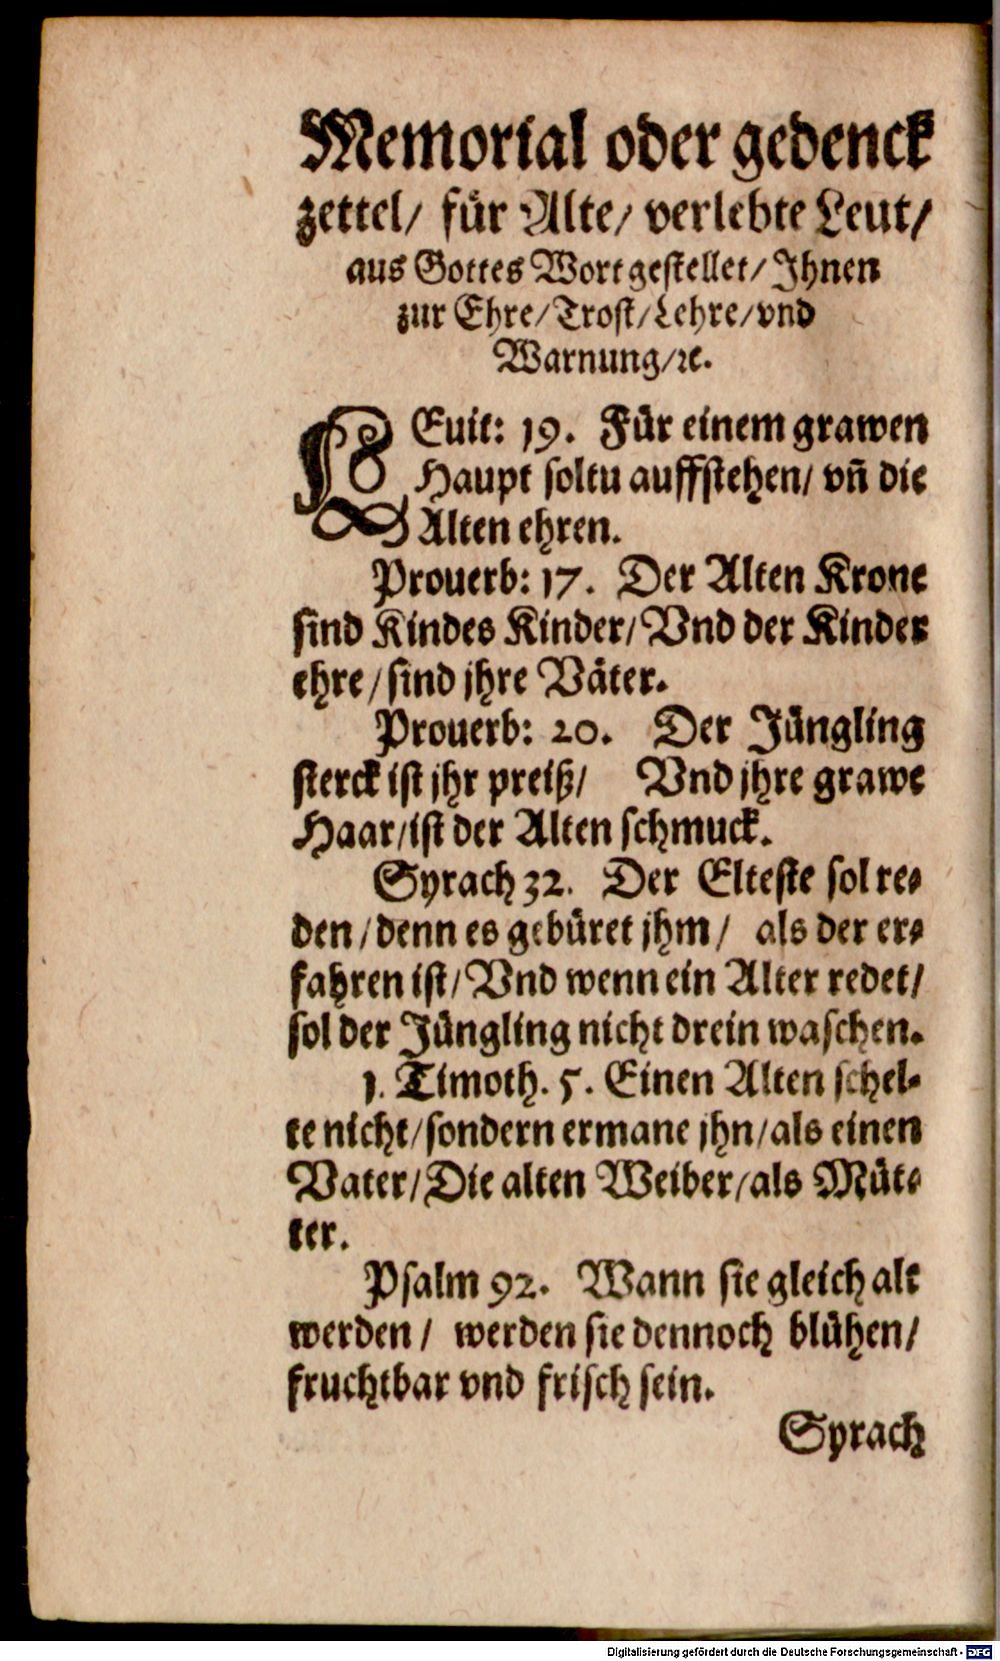 Memorial oder gedenck
zettel/ für Alte/ verlebte Leut/
aus Gottes Wort gestellet/ Ihnen
zur Ehre/ Trost/ Lehre/ vnd
Warnung/ ꝛc.
LEuit: 19. Für einem grawen
Haupt soltu auffstehen/ vn̄ die
Alten ehren.
Prouerb: 17. Der Alten Krone
sind Kindes Kinder/ Vnd der Kinder
ehre/ sind jhre Väter.
Prouerb: 20. Der Jüngling
sterck ist jhr preiß/ Vnd jhre grawe
Haar/ ist der Alten schmuck.
Syrach 32. Der Elteste sol re-
den/ denn es gebüret jhm/ als der er-
fahren ist/ Vnd wenn ein Alter redet/
sol der Jüngling nicht drein waschen.
1. Timoth. 5. Einen Alten schel-
te nicht/ sondern ermane jhn/ als einen
Vater/ Die alten Weiber/ als Müt-
ter.
Psalm 92. Wann sie gleich alt
werden/ werden sie dennoch blühen/
fruchtbar vnd frisch sein.
Syrach
Digitalisierung gefördert durch die Deutsche Forschungsgemeinschaft - DFG